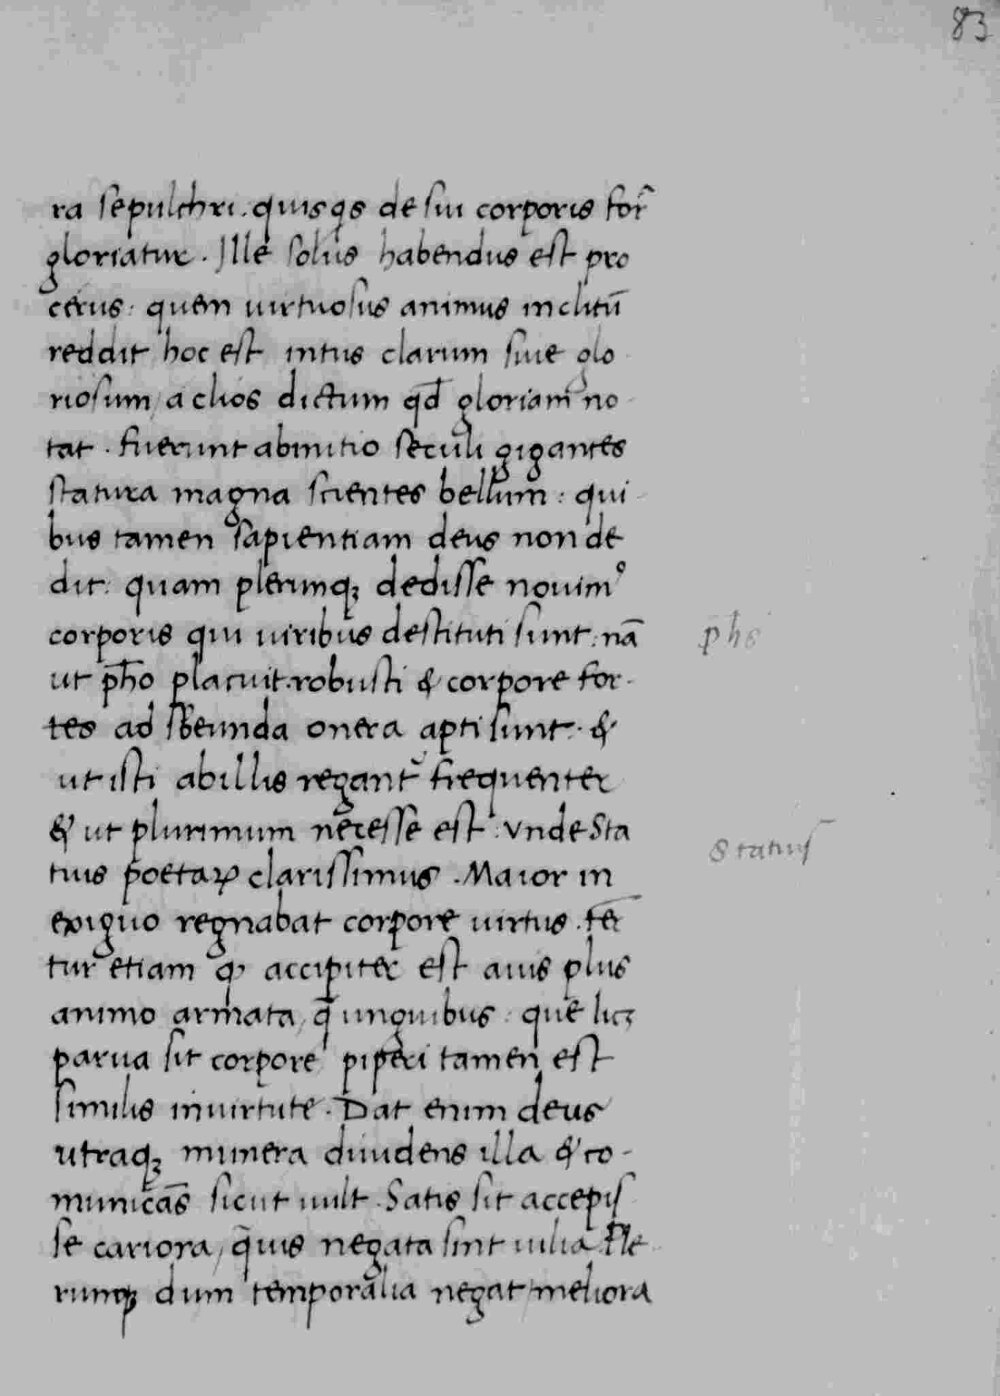 83
ra sepulchri. quisq̢s de sui corporis for̃
gloriatur. Ille solus habendus est pro
cerus: quem virtuosus animus inclitū
reddit hoc est intus clarum sive glo
riosum / a clios dictum qđ gloriam no
tat. fuerunt abinitio seculi gigantes
statura magna scientes bellum: qui
bus tamen sapientiam deus non de
dit: quam plerunqꝫ dedisse novimꝰ
corporis qui viribus destituti sunt: nā
phs
ut pħo placuit. robusti & corpore for-
tes ad sƀeunda onera apti sunt. &
ut isti abillis regant᷑ frequenter
& ut plurimum necesse est: Vnde Sta
Statius
tius poetaꝝ clarissimus. Maior in
exiguo regnabat corpore virtus. fer̄
tur etiam ꝙ accipiter est avis plus
animo armata / q̄ unguibus: que licꝫ
parva sit corpore piperi tamen est
similis invirtute. Dat enim deus
utraqꝫ munera dividens illa & co-
municās sicut vult. Satis sit accepis
se cariora / q̄vis negata sint vilia. Ple
runqꝫ dum temporalia negat / meliora